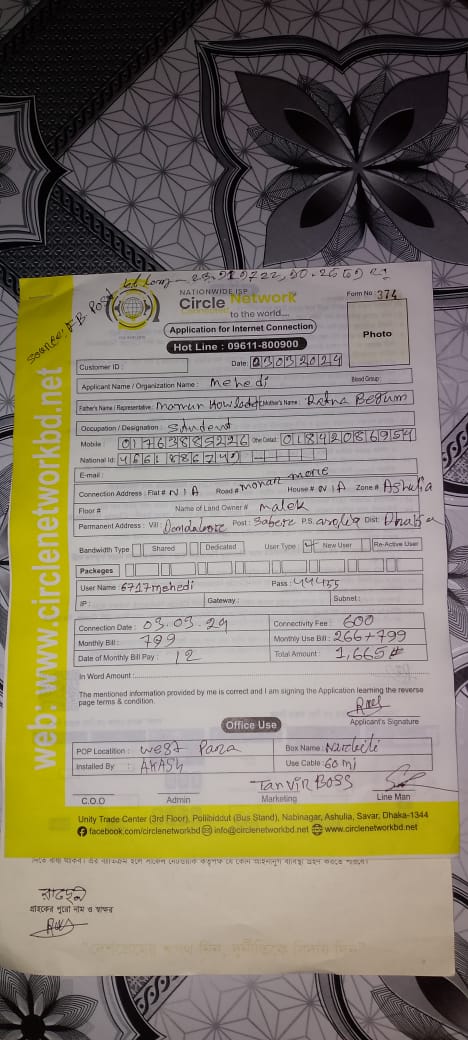 Source: FB Post
NATIONWIDE ISP
Circle Network
to the world....
Form No : 374
Application for Internet Connection
Photo
Hot Line : 09611-800900
Customer ID :
Date: 03032024
Applicant Name / Organization Name : Mehedi Blood Group:
Father's Name / Representative : Mother's Name : Ratna Begum
Occupation / Designation : Student
Mobile : 01763885226 Other Contact : 01842086954
National Id:
E-mail :
Connection Address : Flat # N/A Road # House # N/A Zone # Ashulia
Floor # Name of Land Owner # malek
Permanent Address : Vill : Post : P.S Dist: Dhaka
Bandwidth Type Shared Dedicated User Type New User Re-Active User
Packeges
User Name 6717mehedi Pass : 44455
IP : Gateway : Subnet :
Connection Date : 03.03.24 Connectivity Fee : 600
Monthly Bill : 799 Monthly Use Bill : 266+799
Date of Monthly Bill Pay : 12 Total Amount : 1,665
In Word Amount :
The mentioned information provided by me is correct and I am signing the Application learning the reverse
page terms & condition.
Applicant's Signature
Office Use
POP Localtion : West Para Box Name :
Installed By : AKASH Use Cable 60 mi
TANVIR BOSS
C.O.O Admin Marketing Line Man
Unity Trade Center (3rd Floor), Pollibiddut (Bus Stand), Nabinagar, Ashulia, Savar, Dhaka-1344
facebook.com/circlenetworkbd info@circlenetworkbd.net www.circlenetworkbd.net
web: www.circlenetworkbd.net
গ্রাহকের পুরো নাম ও স্বাক্ষর